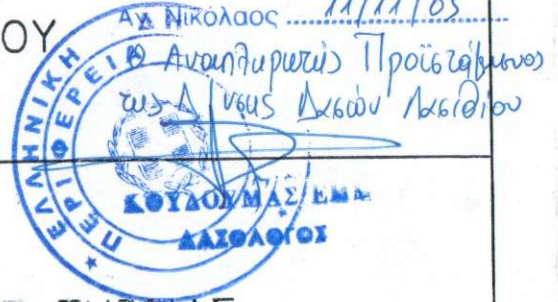 ΟΥ
Αγ. Νικόλαος ... 11/11/05
Ο Αναπληρωτής Προϊστάμενος
της Δ/νσης Δασών Λασιθίου
ΕΛΛΗΝΙΚΗ
ΠΕΡΙΦΕΡΕΙ
ΚΟΥΔΟΥΜΑΣ ΕΜΜ.
ΔΑΣΟΛΟΓΟΣ